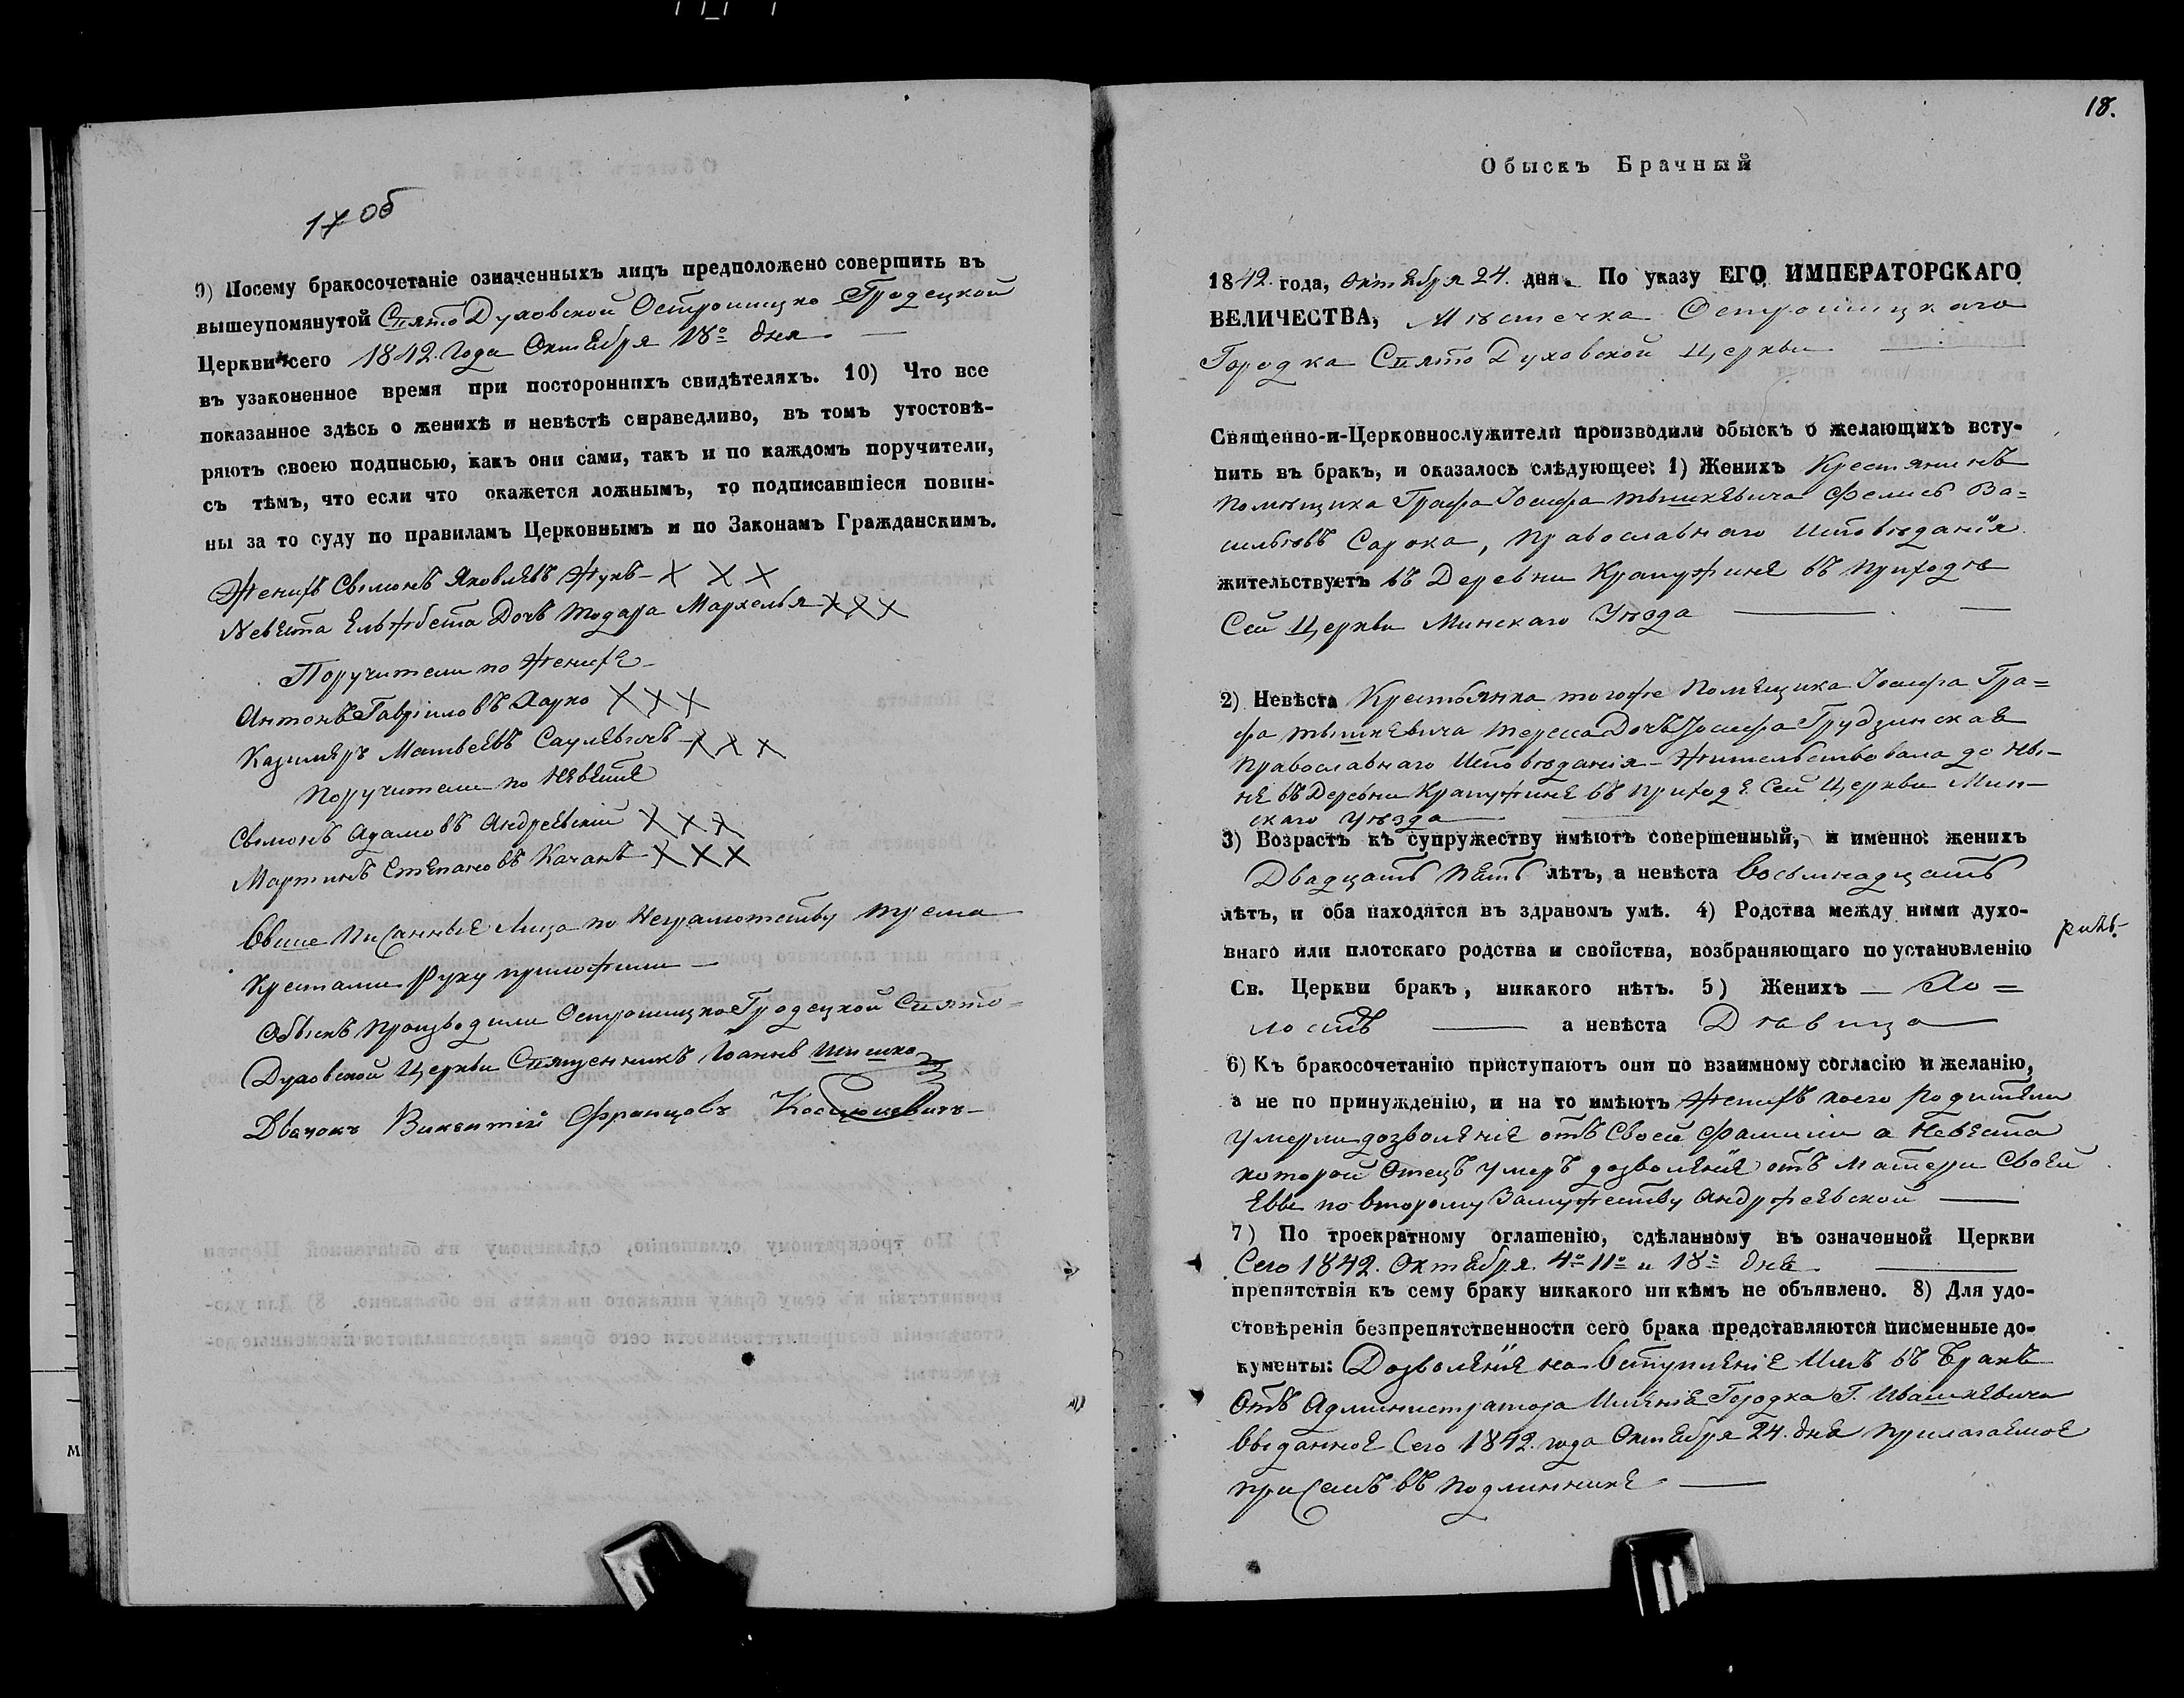 17 об
9) Посему бракосочетаніе означенныхъ лицъ предположено совершить въ
вышеупомянутой Свято Духовской Острошицко Гродецкой
Церкви сего 1842. Года Октября 18º дня
въ узаконенное время при посторонныхъ свидѣтеляхъ. 10) Что все
показанное здѣсь о женихѣ и невѣстѣ справедливо, въ томъ утостовѣ-
ряютъ своею подписью, какъ они сами, такъ и по каждомъ поручители,
съ тѣмъ, что если что окажется ложнымъ, то подписавшіеся повин-
ны за то суду по правиламъ Церковнымъ и по Законамъ Гражданскимъ.
Женихъ Сымонъ Яковлевъ Жукъ - X X X
Невеста Ельжбета Дочь Тодара Мархеля X X X
Поручители по Женихе
Антонъ Гавріиловъ Харко X X X
Казимеръ Матвеевъ Саулевичъ X X X
Поручители по Невесте
Сымонъ Адамовъ Андреевскій X X X
Мартинъ Степановъ Качанъ X X X
Выше писанные Лица по Неграмотству трема
Крестами Руку приложили —
Обыскъ Производили Острошицко Гродецкой Свято-
Духовской Церкви Священникъ Іоаннъ Шишко
Дьячокъ Викентій Францовъ Костюкевичъ
18.
Обыскъ Брачный
1842. года, Октября 24. дня. По указу ЕГО ИМПЕРАТОРСКАГО
ВЕЛИЧЕСТВА, Мѣстечка Острошицкаго
Городка Свято Духовской Церкви
Священно-и-Церковнослужители производили обыскъ о желающихъ всту-
пить въ бракъ, и оказалось слѣдующее: 1) Женихъ Крестянинъ
Помѣщика Графа Іосифа Тышкевича Феликсъ Ва=
сильевъ Сарока, Православнаго Исповѣданія
жительствуетъ въ Деревни Крапужине въ Приходѣ
Сей Церкви Минскаго Уѣзда
2) Невѣста Крестьянка тогоже Помещика Іосифа Гра=
фа Тышкевича Тереса Дочь Іосифа Грудзинская
Православнаго Исповѣданія - Жительствовала до ны-
не въ Деревни Крапужине въ Приходе Сей Церкви Мин-
скаго Уѣзда
3) Возрастъ къ супружеству имѣютъ совершенный, и именно: женихъ
Двадцать Пять лѣтъ, а невѣста Восьмнадцать
лѣтъ, и оба находятся въ здравомъ умѣ. 4) Родства между ними духо-
внаго или плотскаго родства и свойства, возбраняющаго по установленію
Св. Церкви бракъ, никакого нѣтъ. 5) Женихъ — Хо=
лостъ — а невѣста Дѣвица
6) Къ бракосочетанію приступаютъ они по взаимному согласію и желанію,
а не по принужденію, и на то имѣютъ Женихъ коего Родители
умерли дозволеніе отъ Своей Фамиліи а Невеста
которой Отецъ умеръ дозволеніе отъ Матери Своей
Еввы по второму Замужеству Андржеевской
7) По троекратному оглашенію, сдѣланному въ означенной Церкви
Сего 1842. Октября 4º 11º и 18º дня
препятствія къ сему браку никакого ни кѣмъ не объявлено. 8) Для удо-
стовѣренія безпрепятственности сего брака представляются писменные до-
кументы: Дозволеніе на Вступленіе Имъ въ Бракъ
Отъ Администратора Именія Городка Г. Ивашкевича
Выданное Сего 1842. года Октября 24. дня прилагаемое
при семъ въ подлиннике